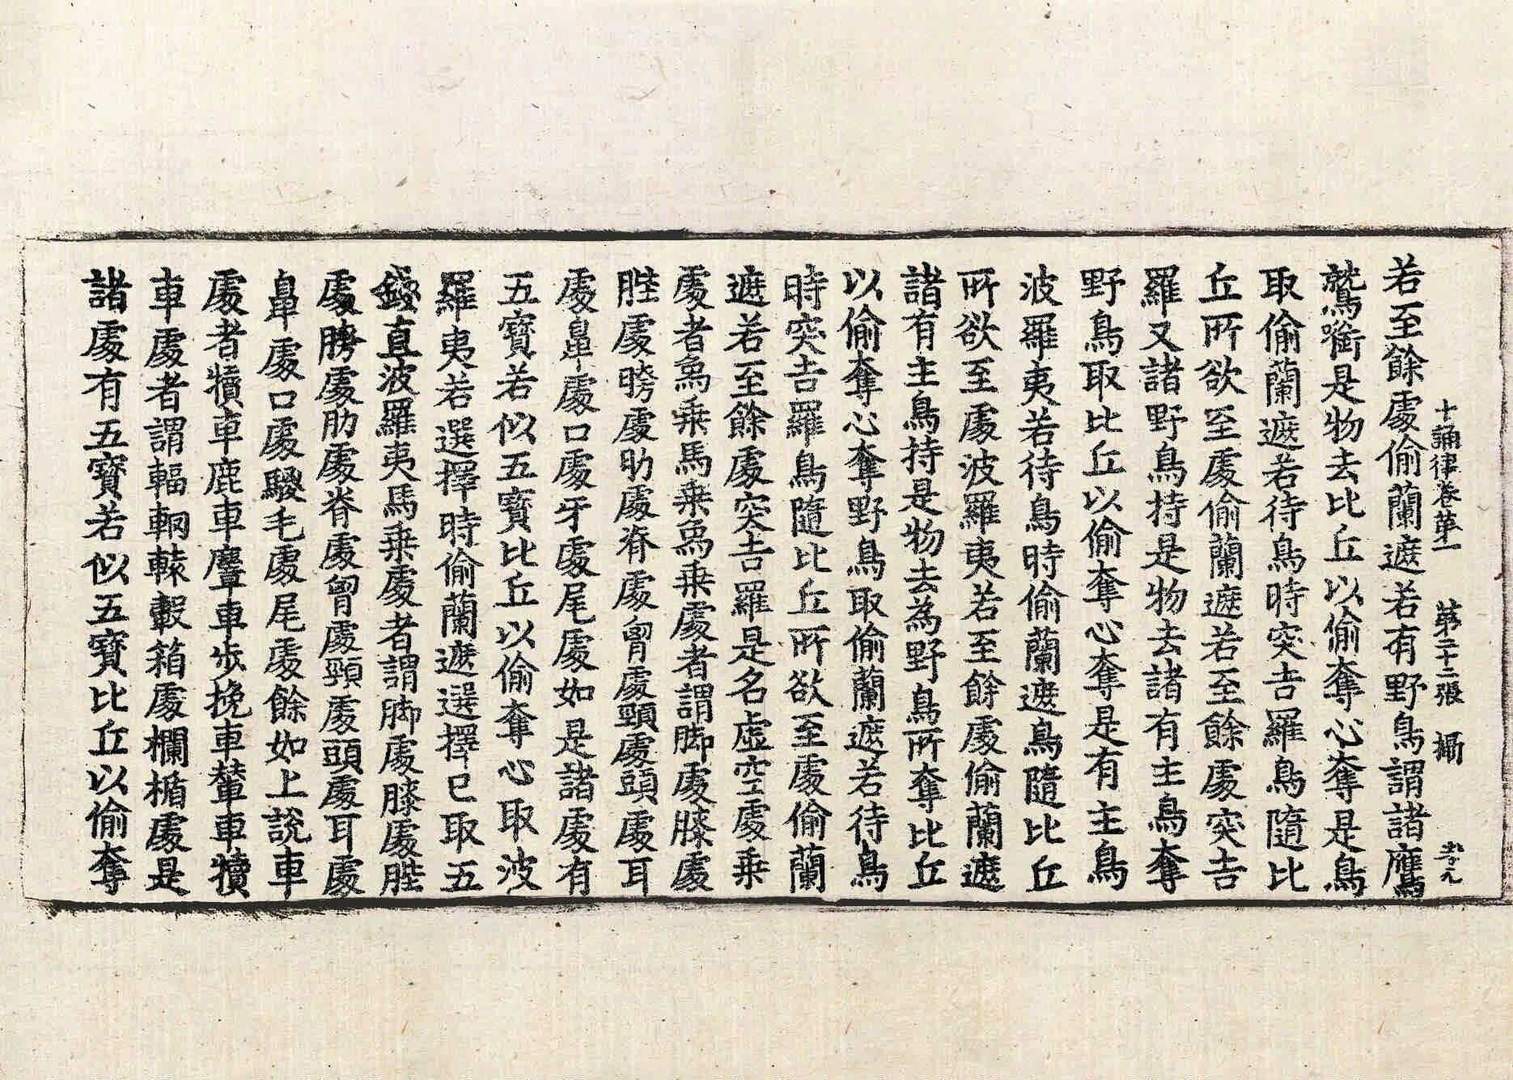 若至餘處偷蘭遮若有野鳥謂諸鷹
十誦律卷第一　第三十二張　攝
鷲銜是物去比丘以偷奪心奪是鳥
取偷蘭遮若待鳥時突吉羅鳥隨比
丘所欲至處偷蘭遮若至餘處突吉
羅又諸野鳥持是物去諸有主鳥奪
野鳥取比丘以偷奪心奪是有主鳥
波羅夷若待鳥時偷蘭遮鳥隨比丘
所欲至處波羅夷若至餘處偷蘭遮
諸有主鳥持是物去為野鳥所奪比丘
以偷奪心奪野鳥取偷蘭遮若待鳥
時突吉羅鳥隨比丘所欲至處偷蘭
遮若至餘處突吉羅是名虛空處乘
處者象乘馬乘象乘處者謂脚處膝處
䏶處䏶處肋處脊處胷處頸處頭處耳
處鼻處口處牙處尾處如是諸處有
五寶若似五寶比丘以偷奪心取波
羅夷若選擇時偷蘭遮選擇已取五
錢直波羅夷馬乘處者謂脚處膝處䏶
處髈處肋處脊處胷處頸處頭處耳處
鼻處口處騣毛處尾處餘如上說車
處者犢車鹿車麞車步挽車輦車犢
車處者謂輻輞轅轂箱處欄楯處是
諸處有五寶若似五寶比丘以偷奪